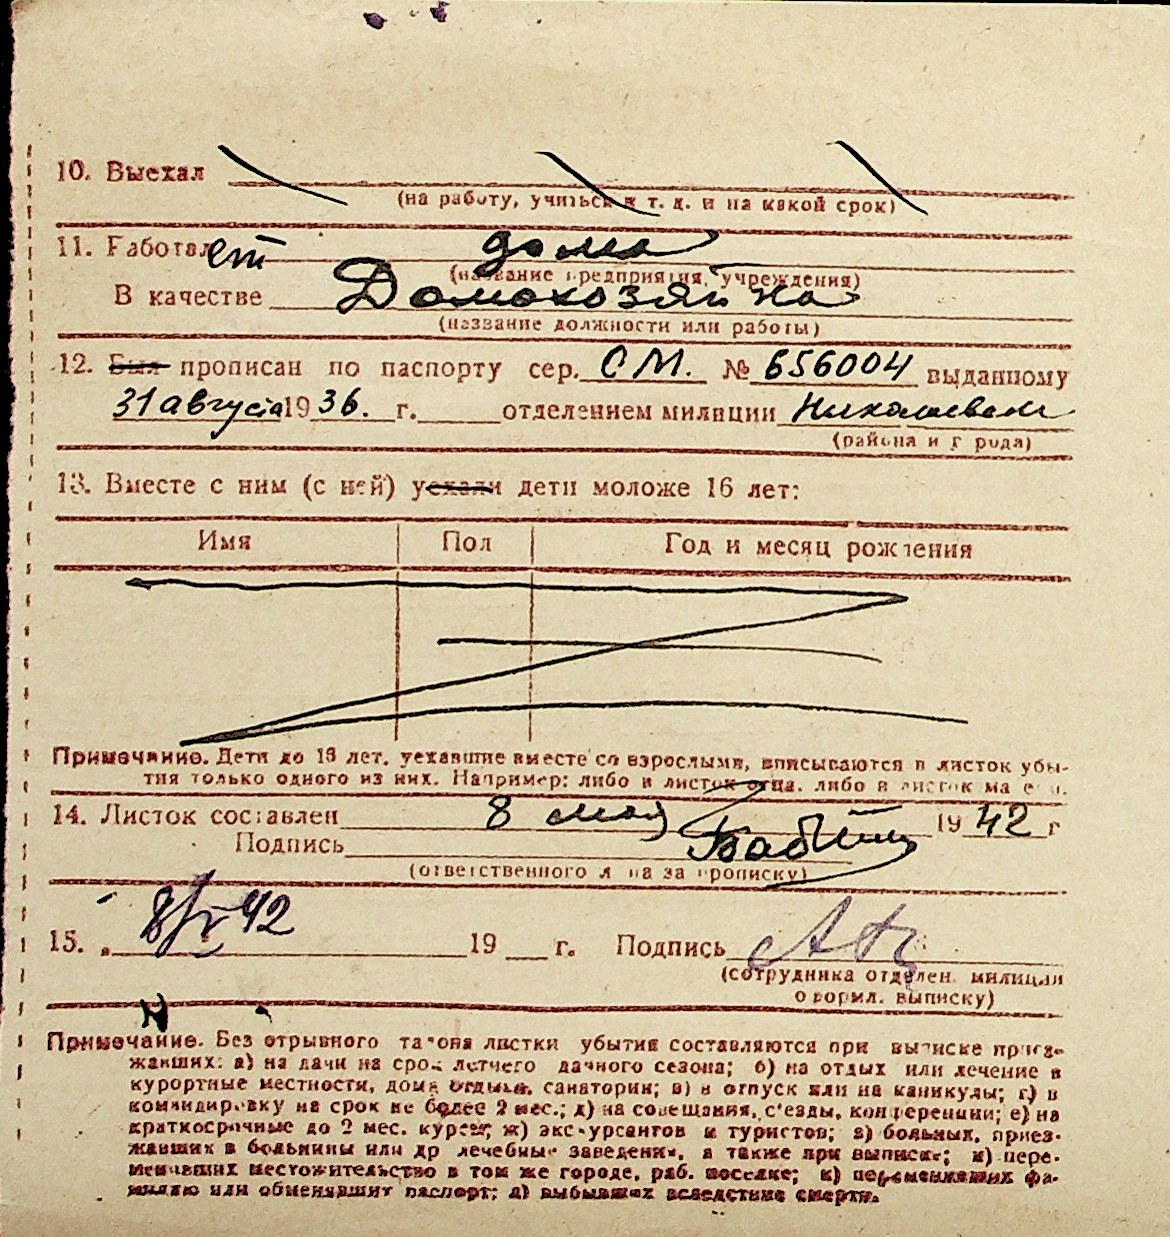 10. Выехал
(на работу, учиться и т. д. и на какой срок)
11. Работает дома
(название предприятия, учреждения)
В качестве Домохозяйка
(название должности или работы)
12. Был прописан по паспорту сер. СМ. № 656004 выданному
31 августа 1936. г. отделением милиции Николаевском
(района и города)
13. Вместе с ним (с ней) уехали дети моложе 16 лет:
Имя Пол Год и месяц рождения
Примечание. Дети до 16 лет, уехавшие вместе со взрослыми, вписываются в листок убы-
тия только одного из них. Например: либо в листок отца, либо в листок матери.
14. Листок составлен 8 мая 1942 г
Подпись
(ответственного лица за прописку)
15. „ 8/V 42 19 г. Подпись
(сотрудника отделен. милиции
оформл. выписку)
Примечание. Без отрывного талона листки убытия составляются при выписке приез-
жавших: а) на дачи на срок летнего дачного сезона; б) на отдых или лечение в
курортные местности, дома отдыха, санатории; в) в отпуск или на каникулы; г) в
командировку на срок не более 2 мес.; д) на совещания, с'езды, конференции; е) на
краткосрочные до 2 мес. курсы; ж) экскурсантов и туристов; з) больных, приез-
жавших в больницы или др лечебные заведения, а также при выписке; и) пере-
менивших местожительство в том же городе, раб. поселке; к) переменивших фа-
милию или обменявших паспорт; л) выбывших вследствие смерти.